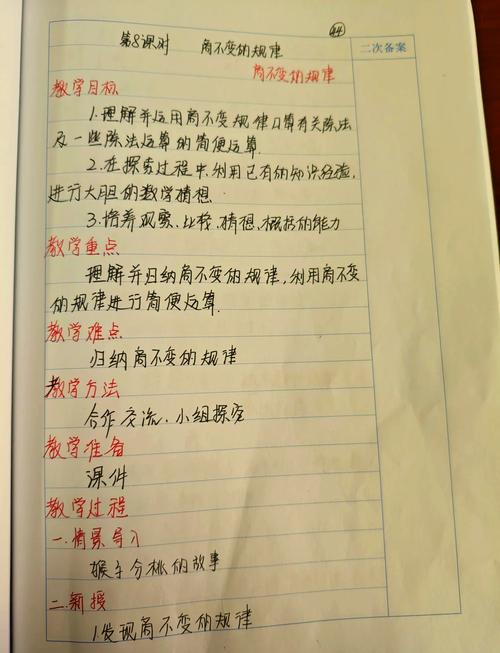 44
第8课时 商不变的规律
二次备案
商不变的规律
教学目标
1.理解并运用商不变规律口算有关除法
及一些除法运算的简便运算.
2.在探索过程中,利用已有的知识经验,
进行大胆的数学猜想.
3.培养观察、比较、猜想、概括的能力
教学重点
理解并归纳商不变的规律,利用商不变
的规律进行简便运算.
教学难点
归纳商不变的规律
教学方法
合作交流、小组探究
教学准备
课件
教学过程
一.情景导入
猴子分桃的故事
二.新授
1.发现商不变的规律